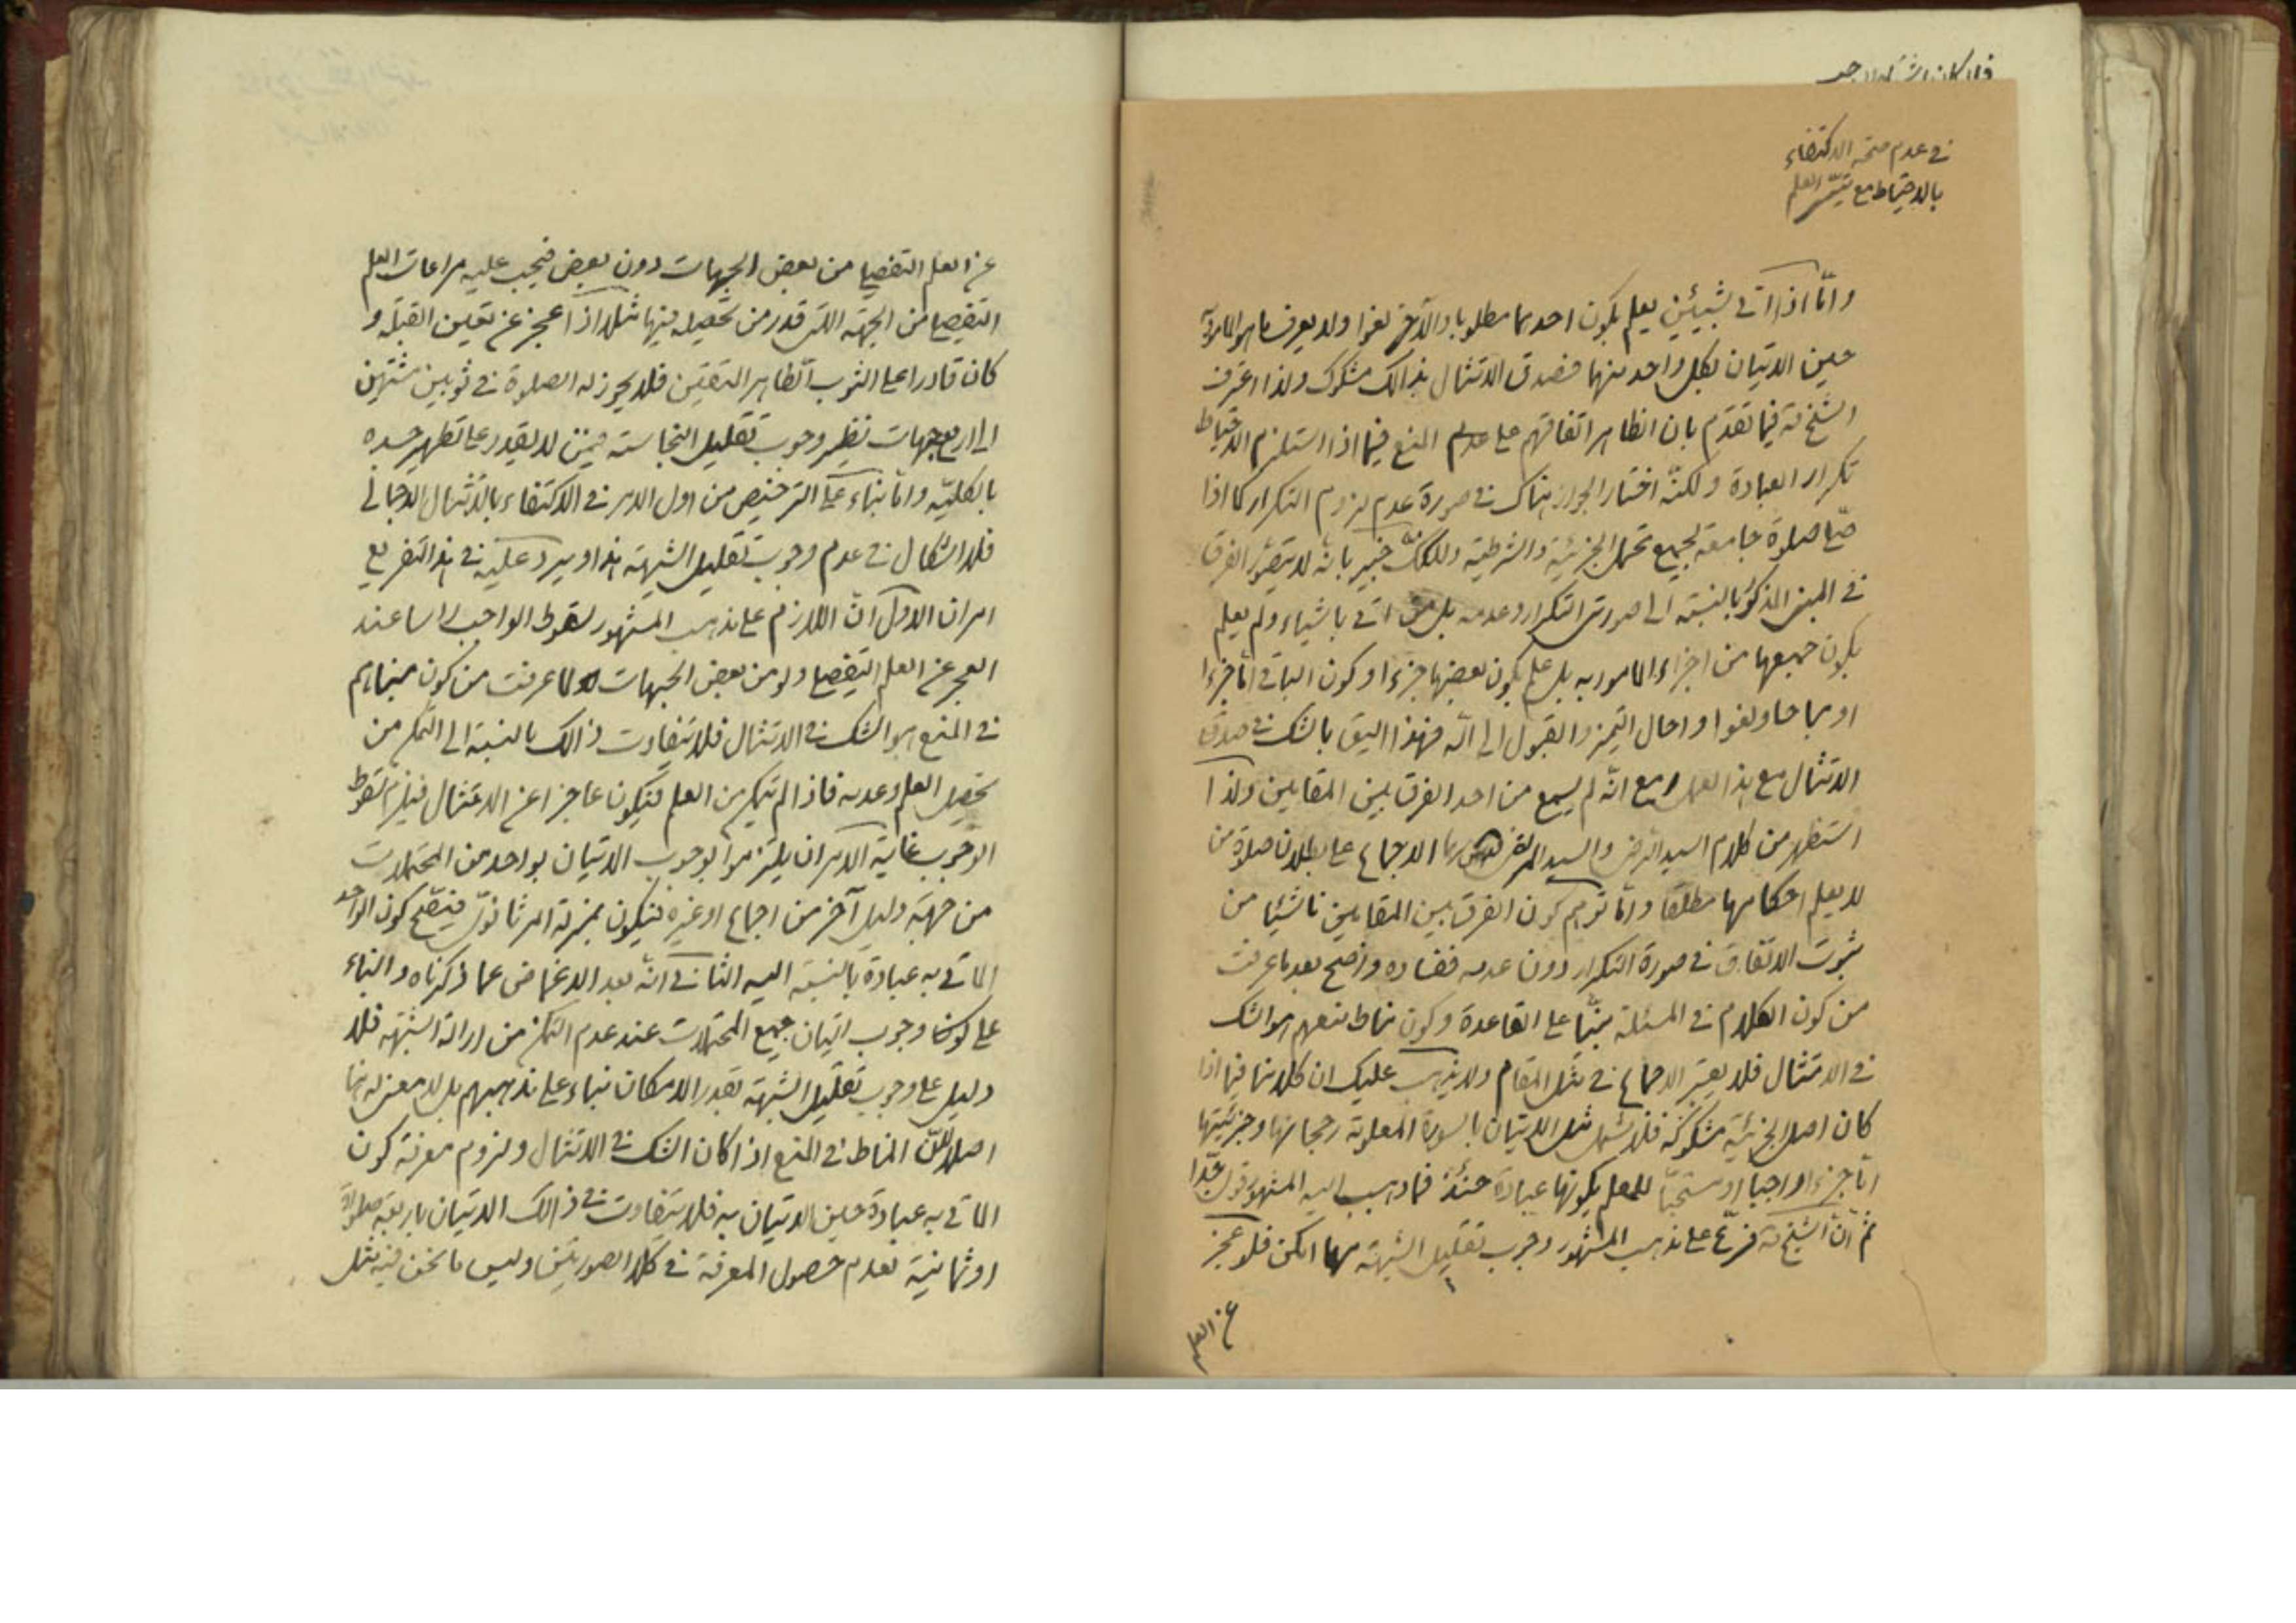 في عدم صحة الاكتفاء
بالاحتياط مع تيسّر العلم
وامّا اذا اتى بشيئين يعلم بكون احدهما مطلوبا والآخر لغوا ولا يعرف ما هو المامور به
حين الاتيان بكل واحد منهما فصدق الامتثال بذالك مشكوك ولذا اعترف
الشيخ ره فيما تقدم بان الظاهر اتفاقهم على عدم المنع فيما اذا استلزم الاحتياط
تكرار العبادة ولكنّه اختار الجواز هناك في صورة عدم لزوم التكرار كما اذا
صلّى صلوة جامعة لجميع محتمل الجزئية والشرطية ولكنّك خبير بانّه لا يتصوّر الفرق
في المبنى المذكور بالنسبة الى صورتى التكرار وعدمه بل متى اتى باشياء ولم يعلم
بكون جميعها من اجزاء المامور به بل علم بكون بعضها جزءا وكون الباقى امّا جزءا
او مباحا ولغوا واحال التميز والقبول الى الله فهذا اليق بالشك في صدق
الامتثال مع هذا العمل مع انّه لم يسمع من احد الفرق بين المقامين ولذا
استظهر من كلام السيد الرضى والسيد المرتضى الاجماع على بطلان صلوة من
لا يعلم احكامها مطلقا وامّا توهم كون الفرق بين المقامين ناشئا من
ثبوت الاتفاق في صورة التكرار دون عدمه ففساده واضح بعد ما عرفت
من كون الكلام في المسئلة مبنيّا على القاعدة وكون مناط منعهم هو الشك
في الامتثال فلا يعتبر الاجماع في مثل المقام ولا يذهب عليك ان كلامنا فيما اذا
كان اصل الجزئية مشكوكة فلا يشمل مثل الاتيان بالسورة المعلومة رجحانها وجزئيتها
امّا جزءا واجبا او مستحبّا للعلم بكونها عبادة حينئذ فما ذهب اليه المشهور قوى جدّا
ثم انّ الشيخ ره فرّع على مذهب المشهور وجوب تقليل الشبهة مهما امكن فلو عجز
عن العلم
عن العلم التفصيلى من بعض الجهات دون بعض فيجب عليه مراعات العلم
التفصيلى من الجهة التى قدر من تحصيله فيها مثلا اذا عجز عن تعيين القبلة و
كان قادرا على الثوب الطاهر المتيقن فلا يجوز له الصلوة في ثوبين مشتبهين
الى اربع جهات نظير وجوب تقليل النجاسة فيمن لا يقدر على تطهير جسده
بالكليّة وامّا بناء على الترخيص من اول الامر في الاكتفاء بالامتثال الاجمالى
فلا اشكال في عدم وجوب تقليل الشبهة هذا ويرد عليه في هذا التفريع
امران الاول انّ اللازم على مذهب المشهور سقوط الواجب راسا عند
العجز عن العلم التفصيلى ولو من بعض الجهات لما عرفت من كون مبناهم
في المنع هو الشك في الامتثال فلا يتفاوت ذالك بالنسبة الى التمكن من
تحصيل العلم وعدمه فاذا لم يتمكن من العلم فيكون عاجزا عن الامتثال فيلزم سقوط
الوجوب غاية الامر ان يلتزموا بوجوب الاتيان بواحد من المحتملات
من جهة دليل آخر من اجماع او غيره فيكون بمنزلة امر ثانوىّ فيتضح كون الواحد
الماتى به عبادة بالنسبة اليه الثانى انّه بعد الاغماض عما ذكرناه والبناء
على كون وجوب اتيان جميع المحتملات عند عدم التمكن من ازالة الشبهة فلا
دليل على وجوب تقليل الشبهة بقدر الامكان بناء على مذهبهم بل لا معنى له هنا
اصلا لانّ المناط في المنع اذا كان الشك في الامتثال ولزوم معرفة كون
الماتى به عبادة حين الاتيان به فلا يتفاوت في ذالك الاتيان باربعة صلوة
او ثمانية لعدم حصول المعرفة في كلا الصورتين وليس ما نحن فيه مثل